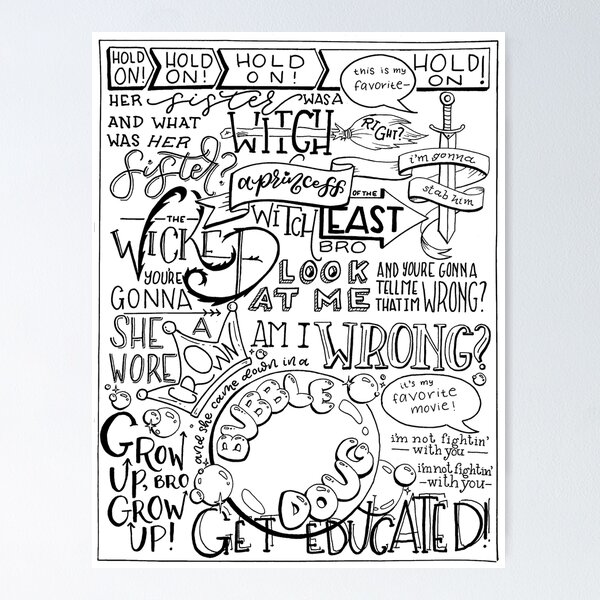 HOLD ON! HOLD ON! HOLD ON! HOLD ON!
this is my favorite-
HER sister WAS A
AND WHAT WITCH RIGHT?
WAS HER
sister?
i'm gonna
stab him
a princess OF THE
THE WICKED WITCH EAST
BRO
YOU'RE LOOK AND YOU'RE GONNA
GONNA AT ME TELL ME
THAT I'M WRONG?
SHE A AM I WRONG?
WORE CROWN
and she came down in a
BUBBLE
DOUG
it's my
favorite
movie!
i'm not fightin'
-with you-
i'm not fightin'
-with you-
GROW
UP, BRO
GROW
UP!
GET EDUCATED!